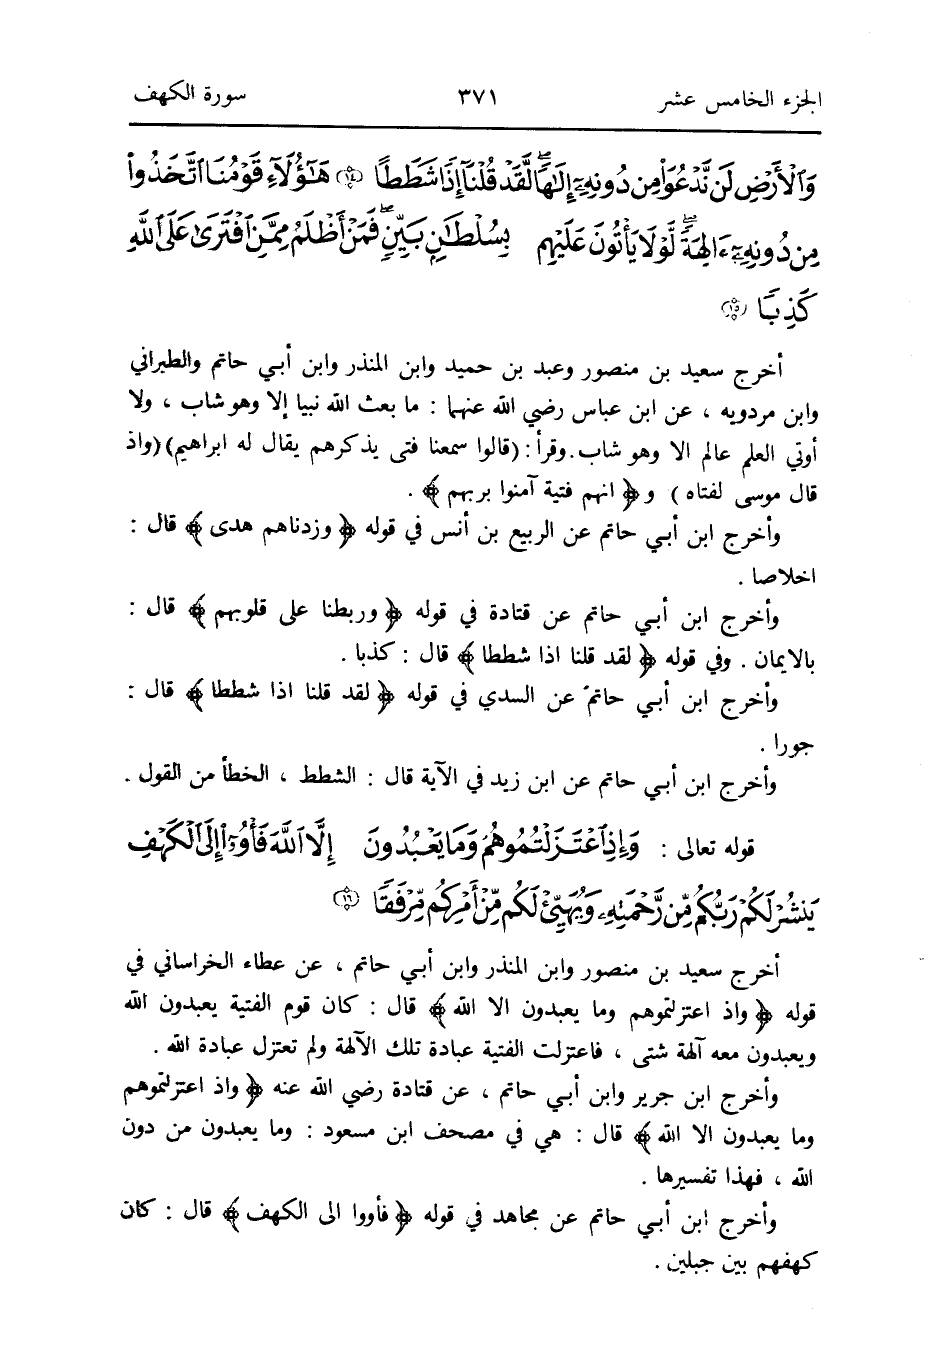 الجزء الخامس عشر ٣٧١ سورة الكهف
وَٱلْأَرْضِ لَن نَّدْعُوَا۟ مِن دُونِهِۦٓ إِلَٰهًا ۖ لَّقَدْ قُلْنَآ إِذًا شَطَطًا ﴿١٤﴾ هَٰٓؤُلَآءِ قَوْمُنَا ٱتَّخَذُوا۟
مِن دُونِهِۦٓ ءَالِهَةً ۖ لَّوْلَا يَأْتُونَ عَلَيْهِم بِسُلْطَٰنٍۭ بَيِّنٍ ۖ فَمَنْ أَظْلَمُ مِمَّنِ ٱفْتَرَىٰ عَلَى ٱللَّهِ
كَذِبًا ﴿١٥﴾
أخرج سعيد بن منصور وعبد بن حميد وابن المنذر وابن أبي حاتم والطبراني
وابن مردويه ، عن ابن عباس رضي الله عنهما : ما بعث الله نبيا إلا وهو شاب ، ولا
أوتي العلم عالم الا وهو شاب. وقرأ : (قالوا سمعنا فتى يذكرهم يقال له ابراهيم) (واذ
قال موسى لفتاه ) و﴿ انهم فتية آمنوا بربهم ﴾ .
وأخرج ابن أبي حاتم عن الربيع بن أنس في قوله ﴿ وزدناهم هدى ﴾ قال :
اخلاصا .
وأخرج ابن أبي حاتم عن قتادة في قوله ﴿ وربطنا على قلوبهم ﴾ قال :
بالايمان . وفي قوله ﴿ لقد قلنا اذا شططا ﴾ قال : كذبا .
وأخرج ابن أبي حاتم عن السدي في قوله ﴿ لقد قلنا اذا شططا ﴾ قال :
جورا .
وأخرج ابن أبي حاتم عن ابن زيد في الآية قال : الشطط ، الخطأ من القول .
قوله تعالى : وَإِذِ ٱعْتَزَلْتُمُوهُمْ وَمَا يَعْبُدُونَ إِلَّا ٱللَّهَ فَأْوُۥٓا۟ إِلَى ٱلْكَهْفِ
يَنشُرْ لَكُمْ رَبُّكُم مِّن رَّحْمَتِهِۦ وَيُهَيِّئْ لَكُم مِّنْ أَمْرِكُم مِّرْفَقًا ﴿١٦﴾
أخرج سعيد بن منصور وابن المنذر وابن أبي حاتم ، عن عطاء الخراساني في
قوله ﴿ واذ اعتزلتموهم وما يعبدون الا الله ﴾ قال : كان قوم الفتية يعبدون الله
ويعبدون معه آلهة شتى ، فاعتزلت الفتية عبادة تلك الآلهة ولم تعتزل عبادة الله .
وأخرج ابن جرير وابن أبي حاتم ، عن قتادة رضي الله عنه ﴿ واذ اعتزلتموهم
وما يعبدون الا الله ﴾ قال : هي في مصحف ابن مسعود : وما يعبدون من دون
الله ، فهذا تفسيرها .
وأخرج ابن أبي حاتم عن مجاهد في قوله ﴿ فأووا الى الكهف ﴾ قال : كان
كهفهم بين جبلين .